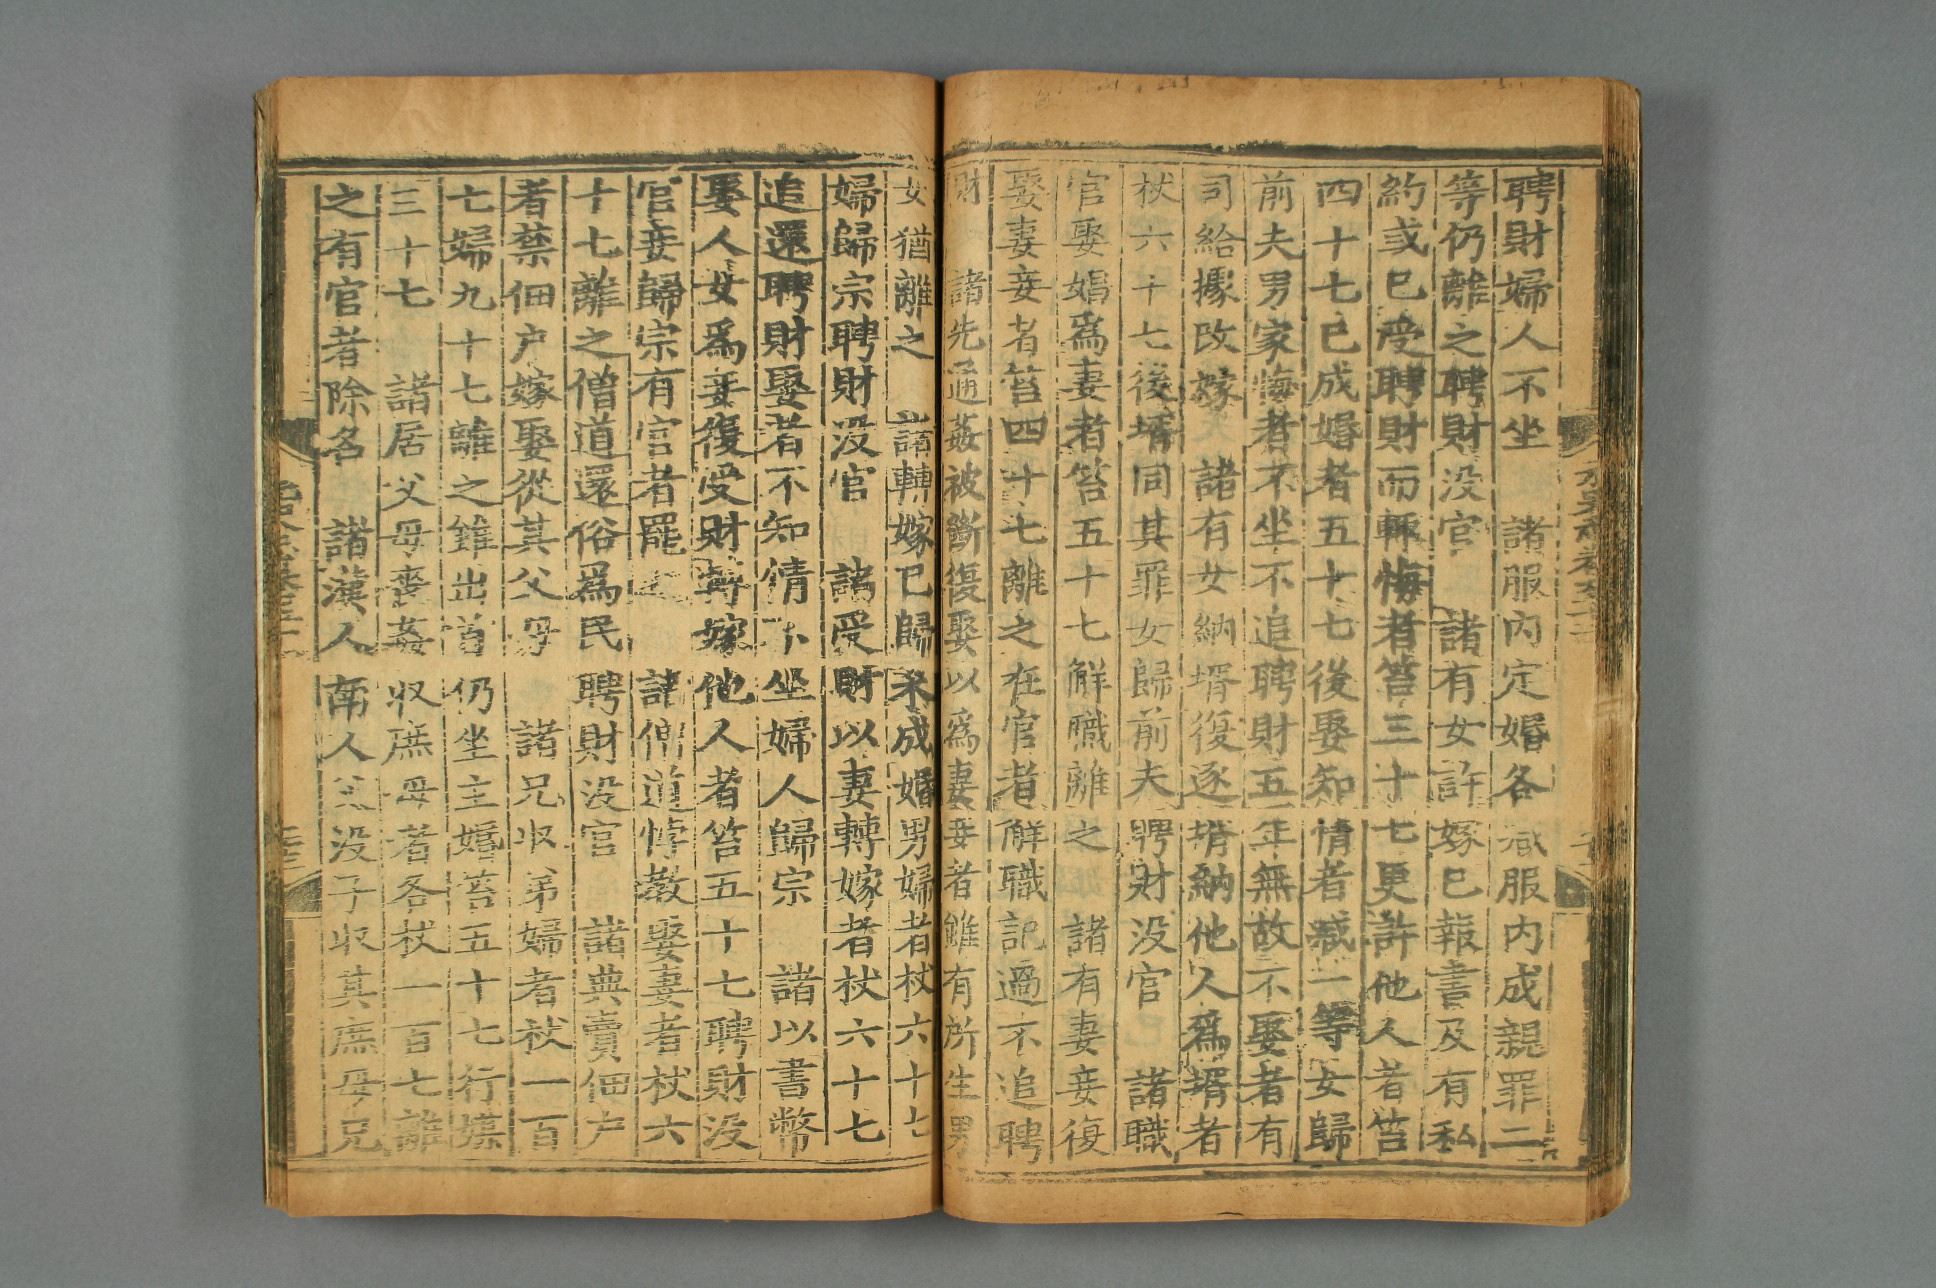 聘財婦人不坐　諸服内定婚各減服内成親罪二
等仍離之聘財没官　諸有女許嫁已報書及有私
約或已受聘財而輒悔者笞三十七更許他人者笞
四十七已成婚者五十七後娶知情者減一等女歸
前夫男家悔者不坐不追聘財五年無故不娶者有
司給據改嫁　諸有女納壻復逐壻納他人爲壻者
杖六十七後壻同其罪女歸前夫聘財没官　諸職
官娶娼爲妻者笞五十七解職離之　諸有妻妾復
娶妻妾者笞四十七離之在官者解職記過不追聘
財　諸先通姦被斷復娶以爲妻妾者雖有所生男
女猶離之　諸轉嫁已歸未成婚男婦者杖六十七
婦歸宗聘財没官　諸受財以妻轉嫁者杖六十七
追還聘財娶者不知情不坐婦人歸宗　諸以書幣
娶人女爲妾復受財轉嫁他人者笞五十七聘財没
官妾歸宗有官者罷之　諸僧道悖教娶妻者杖六
十七離之僧道還俗爲民聘財没官　諸典賣佃户
者禁佃户嫁娶從其父母　諸兄收弟婦者杖一百
七婦九十七離之雖出首仍坐主婚笞五十七行媒
三十七　諸居父母喪姦收庶母者各杖一百七離
之有官者除名　諸漢人南人父没子收其庶母兄